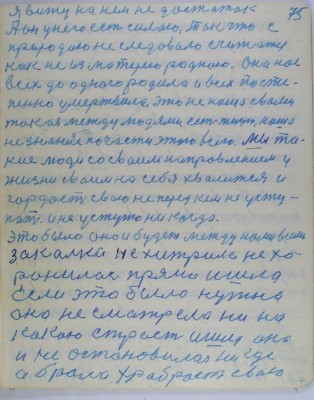 75
Я вижу на нем не достаток
А он у него есть силою, так что с
природою не следовало считаться
как не из матерею родною. Она нас
всех до одного родила и всех посте-
пенно умертвила. Это не наша с вами
такая между людями есть
незнание почасти этого всего. Мы та-
кие люди со своим направлением у
жизни своим на себя хвалится и
гордость свою не перед кем не усту-
пать. и не уступю ни когда.
Это было оно и будет между нами всеми
закалка не хитрила не хо-
ронилас прямо ишла
Если это было нужна
она не сматрела ни на
какою страст ишла она
и не остановилас ни где
а брала храброст свою